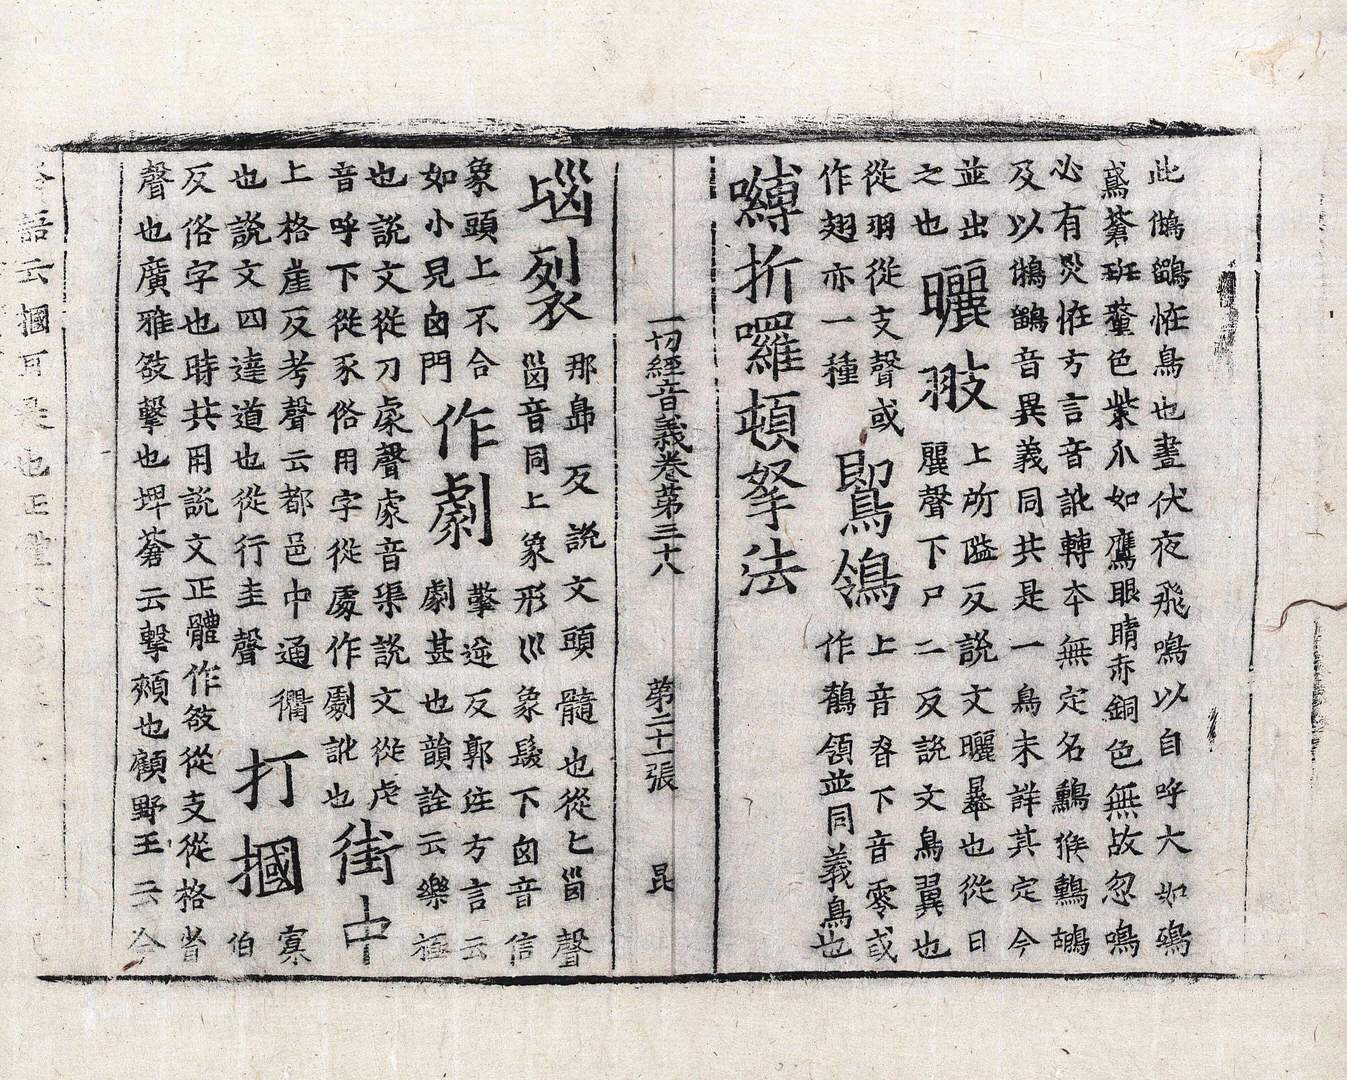 此鵂鶹恠鳥也晝伏夜飛鳴以自呼大如鵄
鳶蒼班蠆色觜爪如鷹眼睛赤銅色無故忽鳴
必有灾恠方言音訛轉夲無定名鸺猴鸺鶘
及以鵂鶹音異義同共是一鳥未詳其定今
並出曬翄上所隘反說文曬㬥也從日
之也麗聲下尸二反說文鳥翼也
從羽從支聲或鴝鴒上音脊下音零或
作翅亦一種作鶺領並同義鳥也
嚩折囉頓拏法
一切經音義卷第三十八 第二十一張 昆
𡿺裂那㠀反說文頭髓也從匕𡿺聲
𡿺音同上象形巛象髮下囟音信
象頭上不合作劇擎逆反郭注方言云
如小兒囟門劇甚也韻詮云樂極
也說文從刀豦聲豦音渠說文從虍
音呼下從豕俗用字從㔟作劇訛也街中
上格崖反考聲云都邑中通衢
也說文四達道也從行圭聲打摑寡
反俗字也時共用說文正體作敋從支從格省
聲也廣雅敋擊也埤蒼云擊頰也顧野王云今
俗語云摑耳是也正體